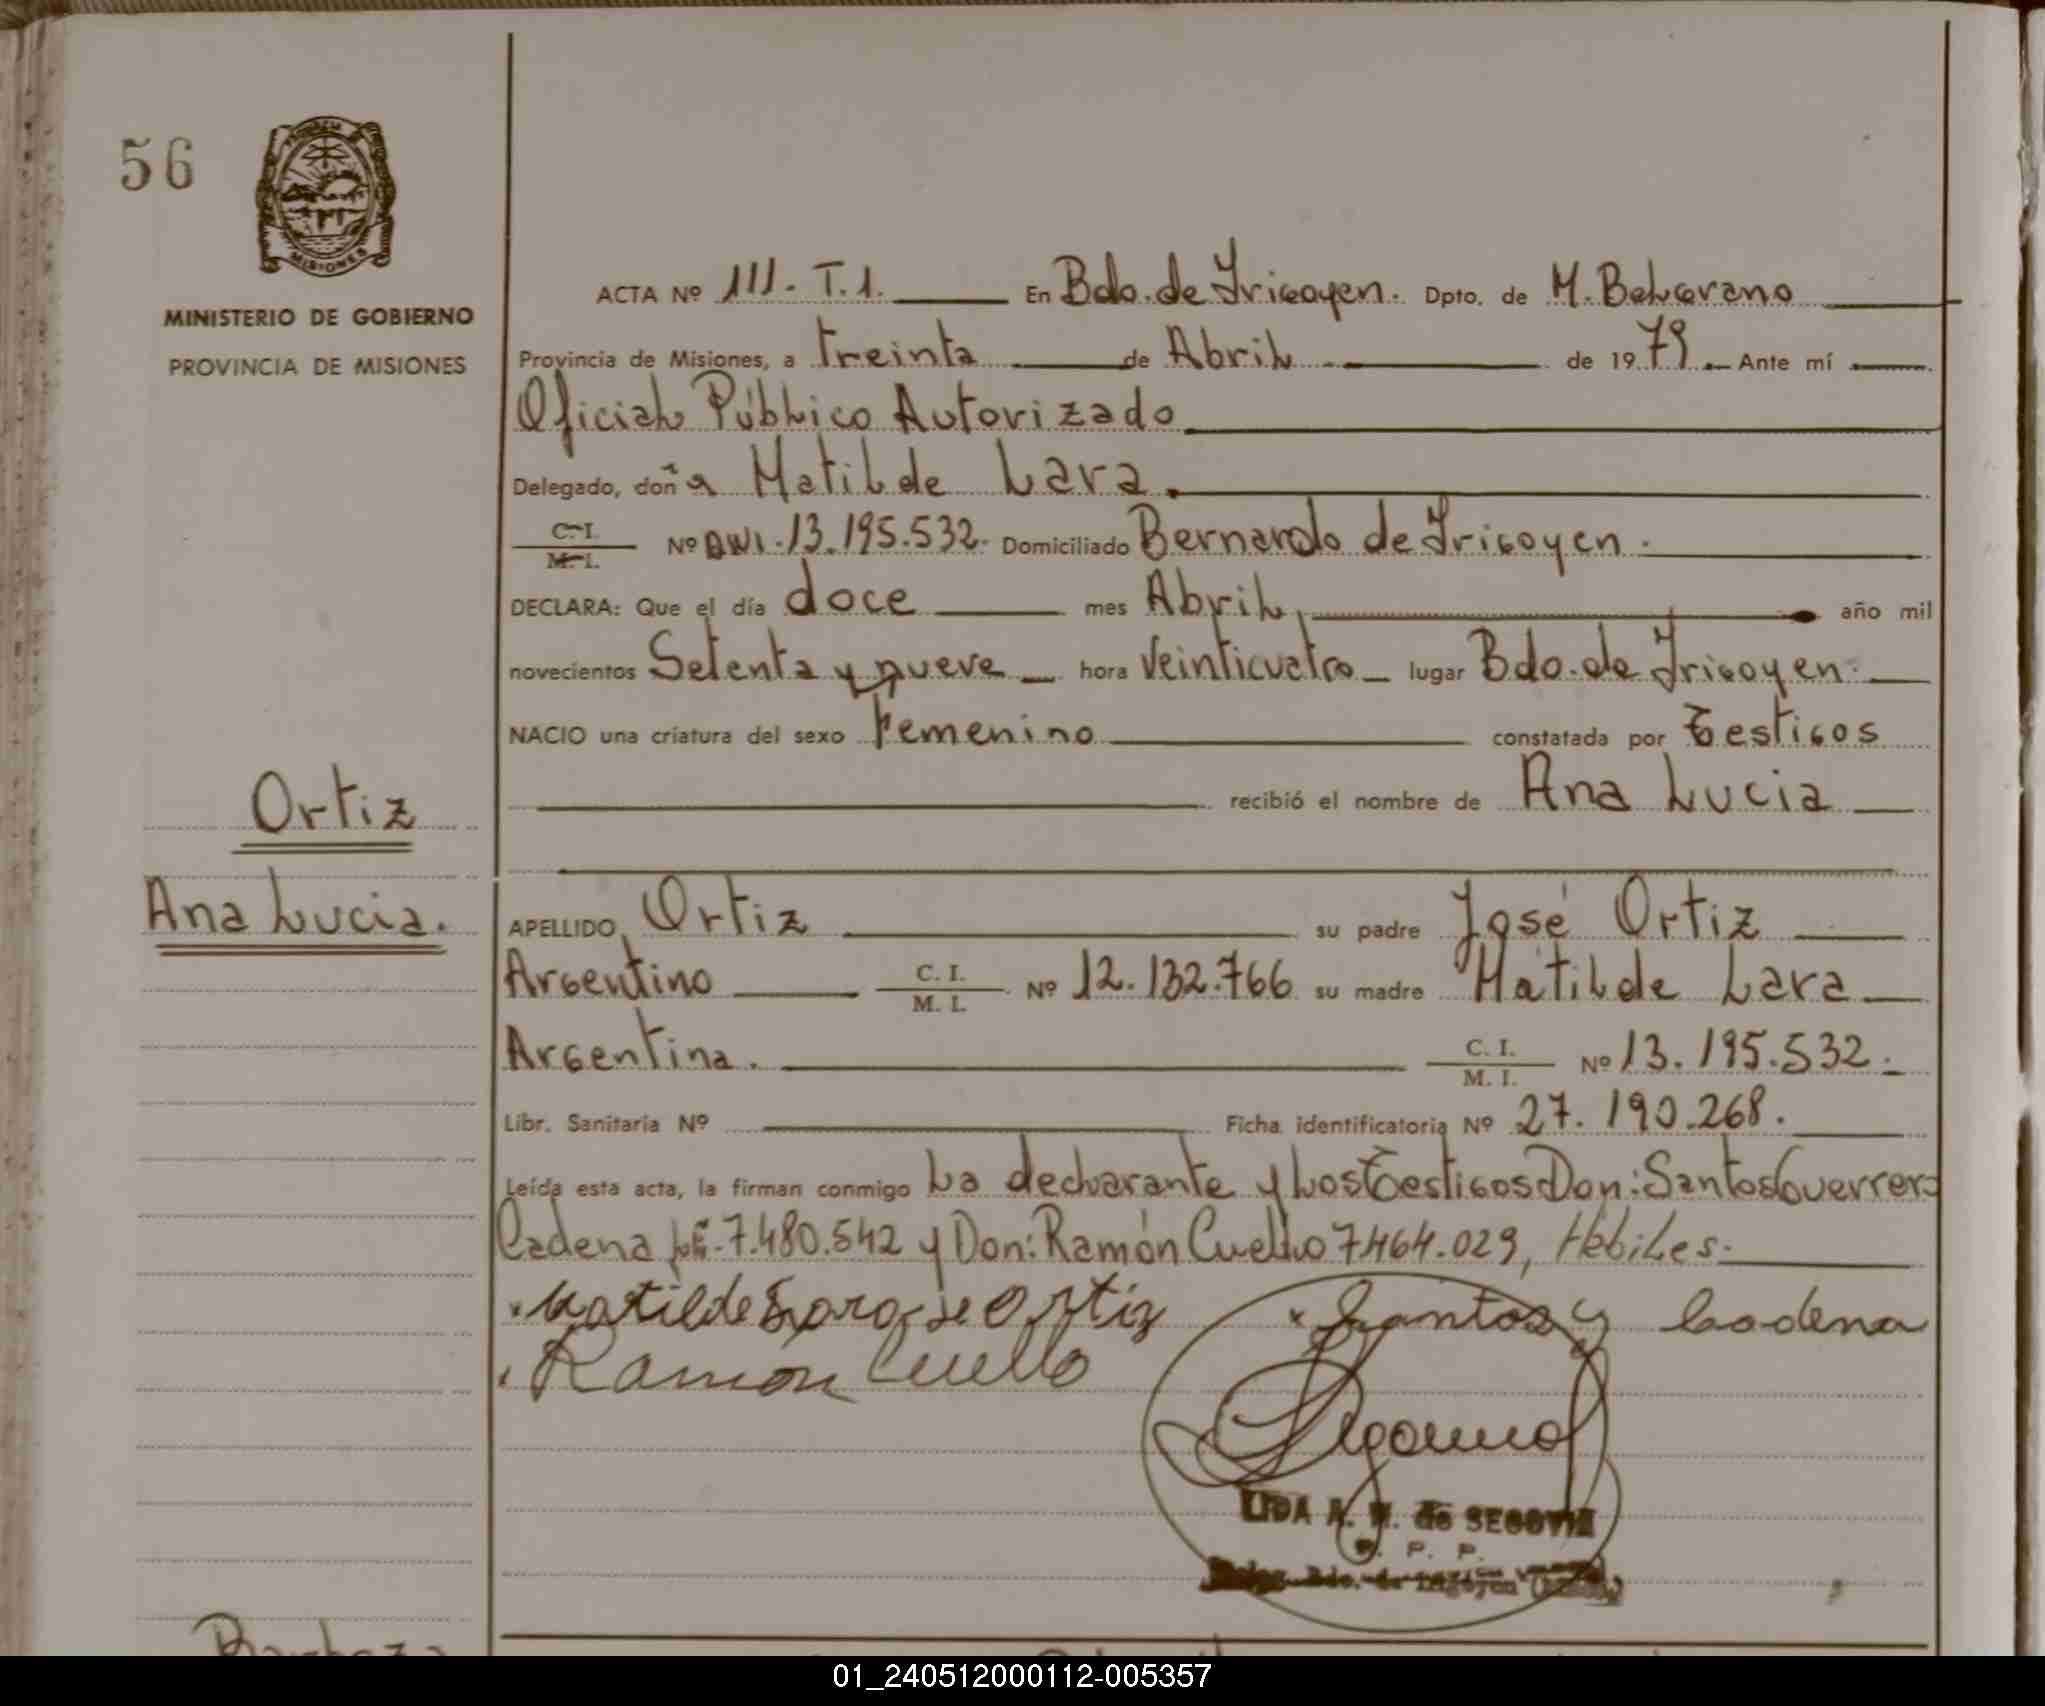 56
MISIONES
MINISTERIO DE GOBIERNO
PROVINCIA DE MISIONES
Ortiz
Ana Lucia.
ACTA Nº 111. T.1. En Bdo. de Irigoyen. Dpto. de M. Belgrano
Provincia de Misiones, a treinta de Abril de 1979 Ante mí
Oficial Público Autorizado
Delegado, doña Matilde Lara.
C. I. / M. I. Nº DNI. 13.195.532. Domiciliado Bernardo de Irigoyen.
DECLARA: Que el día doce mes Abril, año mil
novecientos Setenta y nueve hora Veinticuatro lugar Bdo. de Irigoyen.
NACIO una criatura del sexo Femenino constatada por Testigos
recibió el nombre de Ana Lucia
APELLIDO Ortiz su padre José Ortiz
Argentino C. I. / M. I. Nº 12.132.766 su madre Matilde Lara
Argentina. C. I. / M. I. Nº 13.195.532.
Libr. Sanitaria Nº Ficha identificatoria Nº 27.190.268.
Leída esta acta, la firman conmigo La declarante y Los Testigos Don: Santos Guerrero
Cadena 7.480.542 y Don: Ramón Cuello 7.464.029, Hábiles.
Matilde Lara de Ortiz Santos G Cadena
Ramon Cuello
LIDA A. M. de SEGOVIA
P. P.
Bdo. de Irigoyen